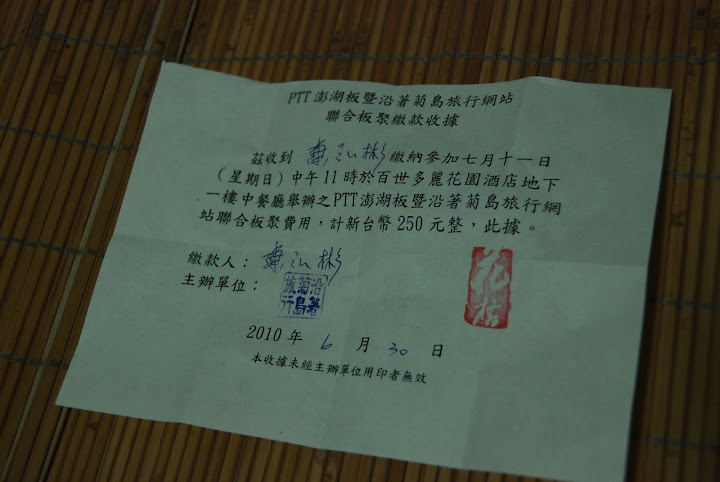 PTT澎湖板暨沿著菊島旅行網站
聯合板聚繳款收據
茲收到 蕭弘彬 繳納參加七月十一日
(星期日)中午11時於百世多麗花園酒店地下
一樓中餐廳舉辦之PTT澎湖板暨沿著菊島旅行網
站聯合板聚費用,計新台幣250元整,此據。
繳款人: 蕭弘彬
主辦單位:
沿著
菊島
旅行
花
2010 年 6 月 30 日
本收據未經主辦單位用印者無效